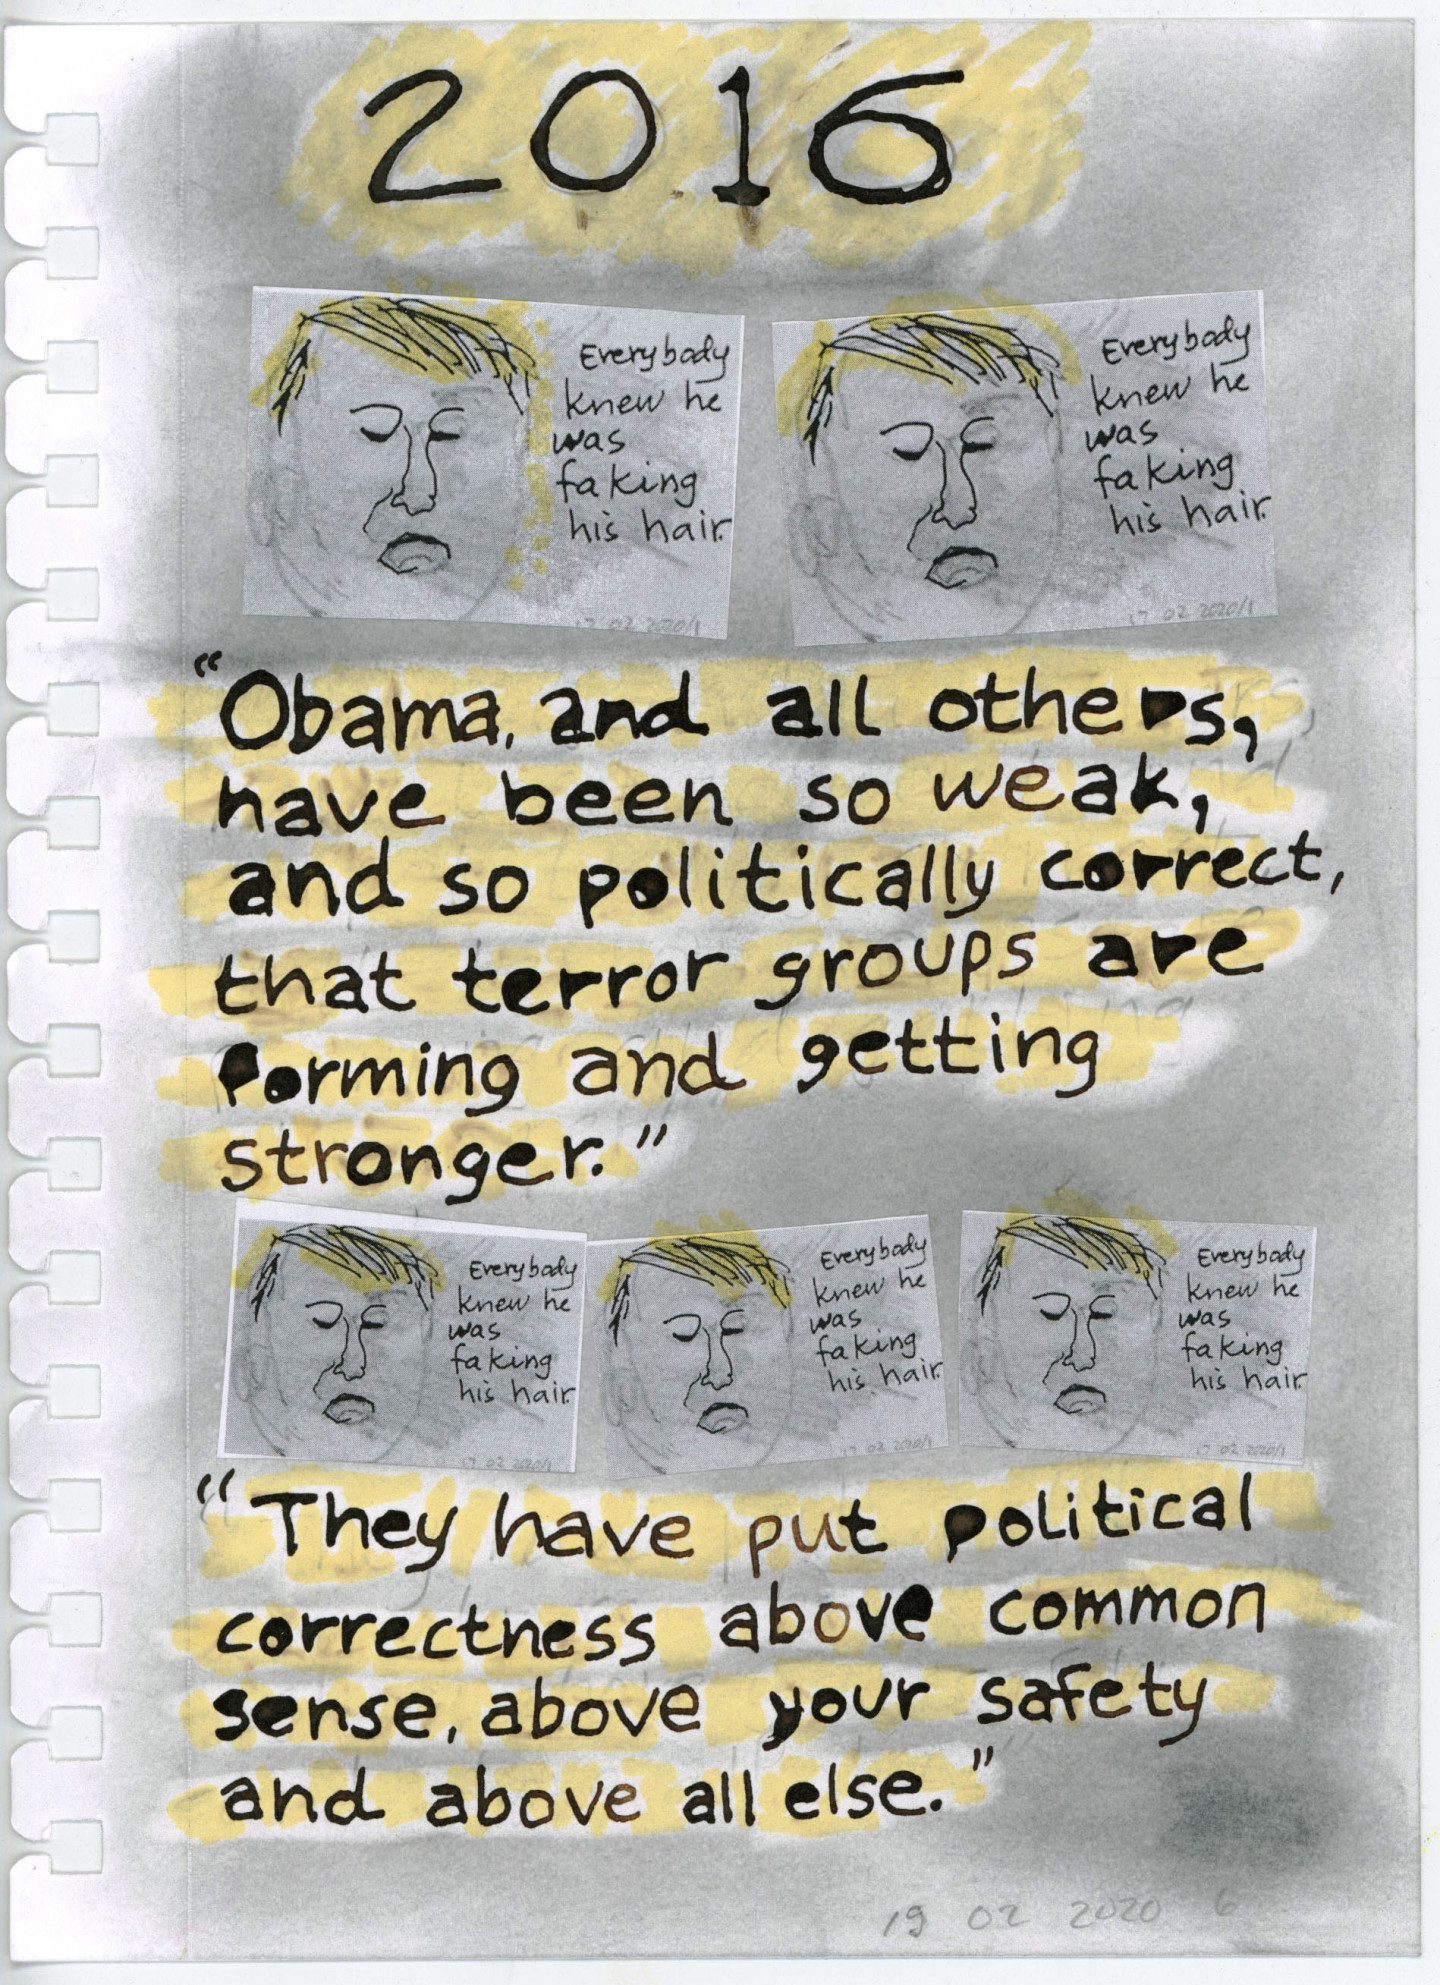 2016
Everybody
knew he
was
faking
his hair.
17 02 2020/1
Everybody
knew he
was
faking
his hair.
17 02 2020/1
"Obama, and all others,
have been so weak,
and so politically correct,
that terror groups are
forming and getting
stronger."
Everybody
knew he
was
faking
his hair.
17 02 2020/1
Everybody
knew he
was
faking
his hair.
17 02 2020/1
Everybody
knew he
was
faking
his hair.
17 02 2020/1
"They have put political
correctness above common
sense, above your safety
and above all else."
19 02 2020 6